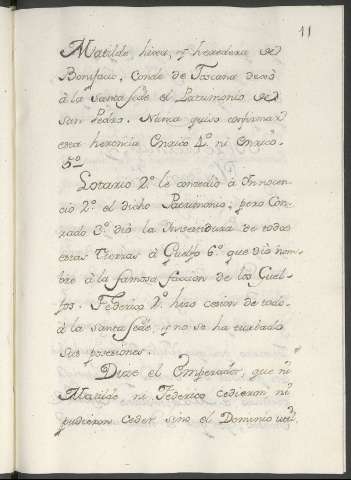 11
Matilde, hixa, y heredera de
Bonifacio, Conde de Toscana dexò
à la santa sede el Patrimonio de
san Pedro. Nunca quiso confirmar
esta herencia Enrico 4.º ni Enrico
5.º
Lotario 2.º le concedio à Innocen
cio 2.º el dicho Patrimonio; pero Con
rado 3.º diò la Investidura de todas
estas tierras à Guelfo 6.º que diò nom
bre à la famosa faccion de los Guel
fos. Federico 2.º hizo cesion de todo
à la santa sede, y no se ha turbado
sus posesiones.
Dize el Emperador, que ni
Matilde, ni Federico cedieron ni
pudieron ceder sino el Dominio util